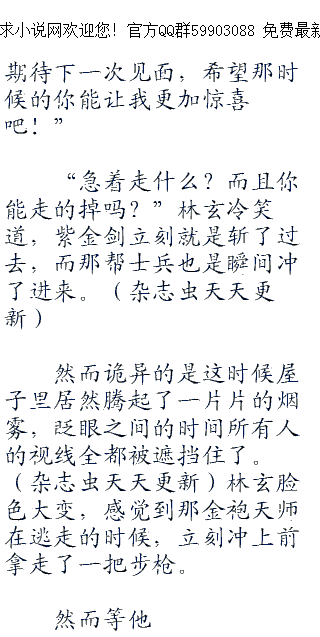 求小说网欢迎您！官方QQ群59903088 免费最新
期待下一次见面，希望那时
候的你能让我更加惊喜
吧！”
“急着走什么？而且你
能走的掉吗？”林玄冷笑
道，紫金剑立刻就是斩了过
去，而那帮士兵也是瞬间冲
了进来。（杂志虫天天更
新）
然而诡异的是这时候屋
子里居然腾起了一片片的烟
雾，眨眼之间的时间所有人
的视线全都被遮挡住了。
（杂志虫天天更新）林玄脸
色大变，感觉到那金袍天师
在逃走的时候，立刻冲上前
拿走了一把步枪。
然而等他